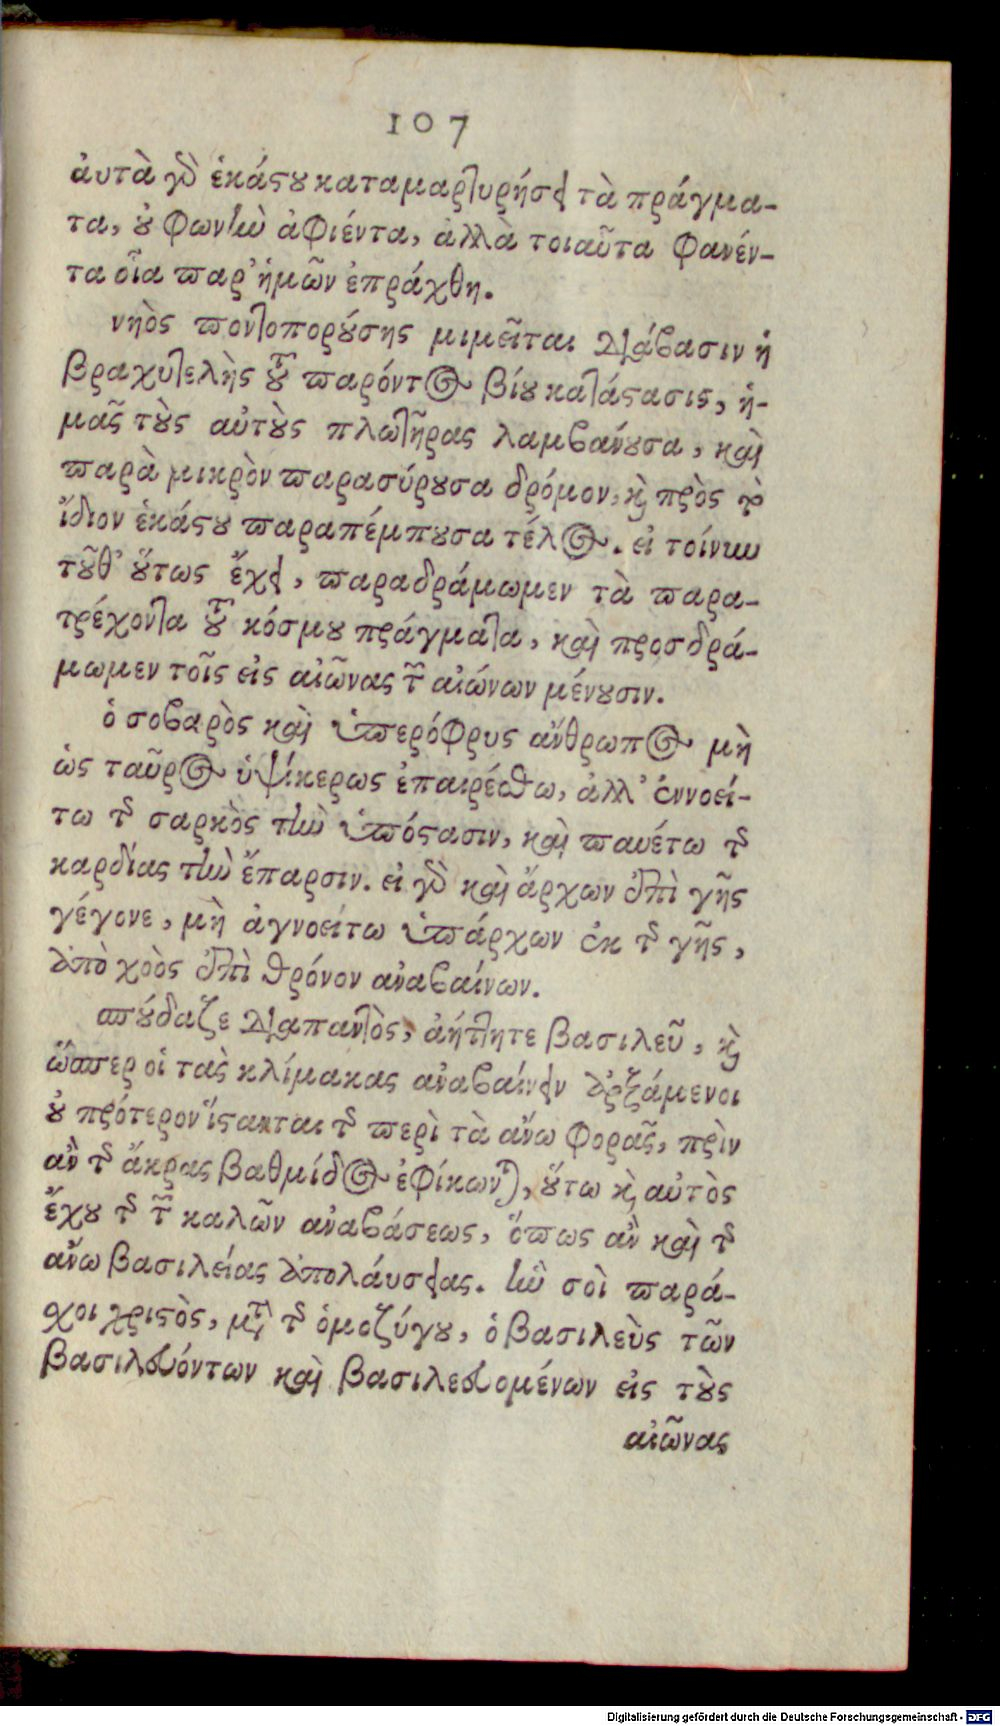 107
ἀυτὰ γὰρ ἑκάστου καταμαρτυρήσει τὰ πράγμα-
τα, οὐ φωνὴν ἀφιέντα, ἀλλὰ τοιαῦτα φανέν-
τα οἷα παρ' ἡμῶν ἐπράχθη.
νηὸς ποντοπορούσης μιμεῖται διάβασιν ἡ
βραχυτελὴς τοῦ παρόντος βίου κατάστασις, ἡ-
μᾶς τοὺς αὐτοὺς πλωτῆρας λαμβανουσα, καὶ
παρὰ μικρὸν παρασύρουσα δρόμον, καὶ πρὸς τὸ
ἴδιον ἑκάστου παραπέμπουσα τέλος. εἰ τοίνυν
τοῦθ' οὕτως ἔχει, παραδράμωμεν τὰ παρα-
τρέχοντα τοῦ κόσμου πράγματα, καὶ προσδρά-
μωμεν τοῖς εἰς αἰῶνας τῶν αἰώνων μένουσιν.
ὁ σοβαρὸς καὶ ὑπερόφρυς ἄνθρωπος μὴ
ὡς ταῦρος ὑψίκερως ἐπαιρέσθω, ἀλλ' ἐννοεί-
τω τῆς σαρκὸς τὴν ὑπόστασιν, καὶ παυέτω τῆς
καρδίας τὴν ἔπαρσιν. εἰ γὰρ καὶ ἄρχων ἐπὶ γῆς
γέγονε, μὴ ἀγνοείτω ὑπάρχων ἐκ τῆς γῆς,
ἀπὸ χοὸς ἐπὶ θρόνον ἀναβαίνων.
σπούδαζε διαπαντὸς, ἀήττητε βασιλεῦ, καὶ
ὥσπερ οἱ τὰς κλίμακας ἀναβαίνειν ἀρξάμενοι
οὐ πρότερον ἵστανται τῆς περὶ τὰ ἄνω φορᾶς, πρὶν
ἂν τῆς ἄκρας βαθμίδος ἐφίκωνται, οὕτω καὶ αὐτὸς
ἔχου τῆς τῶν καλῶν ἀναβάσεως, ὅπως ἂν καὶ τῆς
ἄνω βασιλείας ἀπολάυσειας. ἣν σοὶ παρά-
σχοι χριστὸς, μετὰ τῆς ὁμοζύγου, ὁ βασιλεὺς τῶν
βασιλευόντων καὶ βασιλευομένων εἰς τοὺς
αἰῶνας
Digitalisierung gefördert durch die Deutsche Forschungsgemeinschaft - DFG